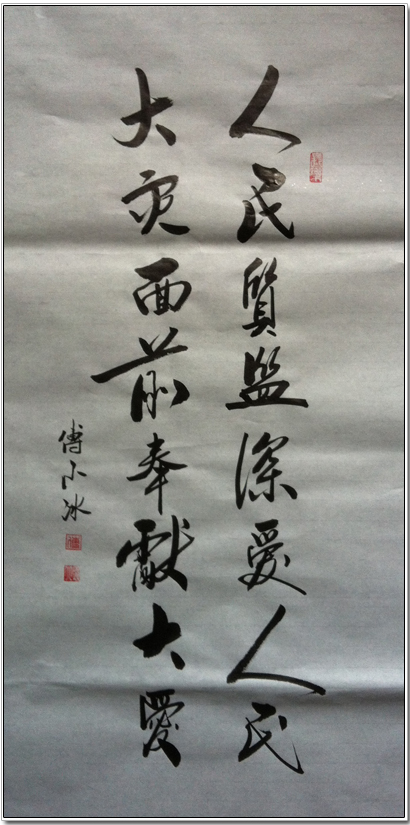 人民質監深愛人民
大灾面前奉獻大愛
傅小冰